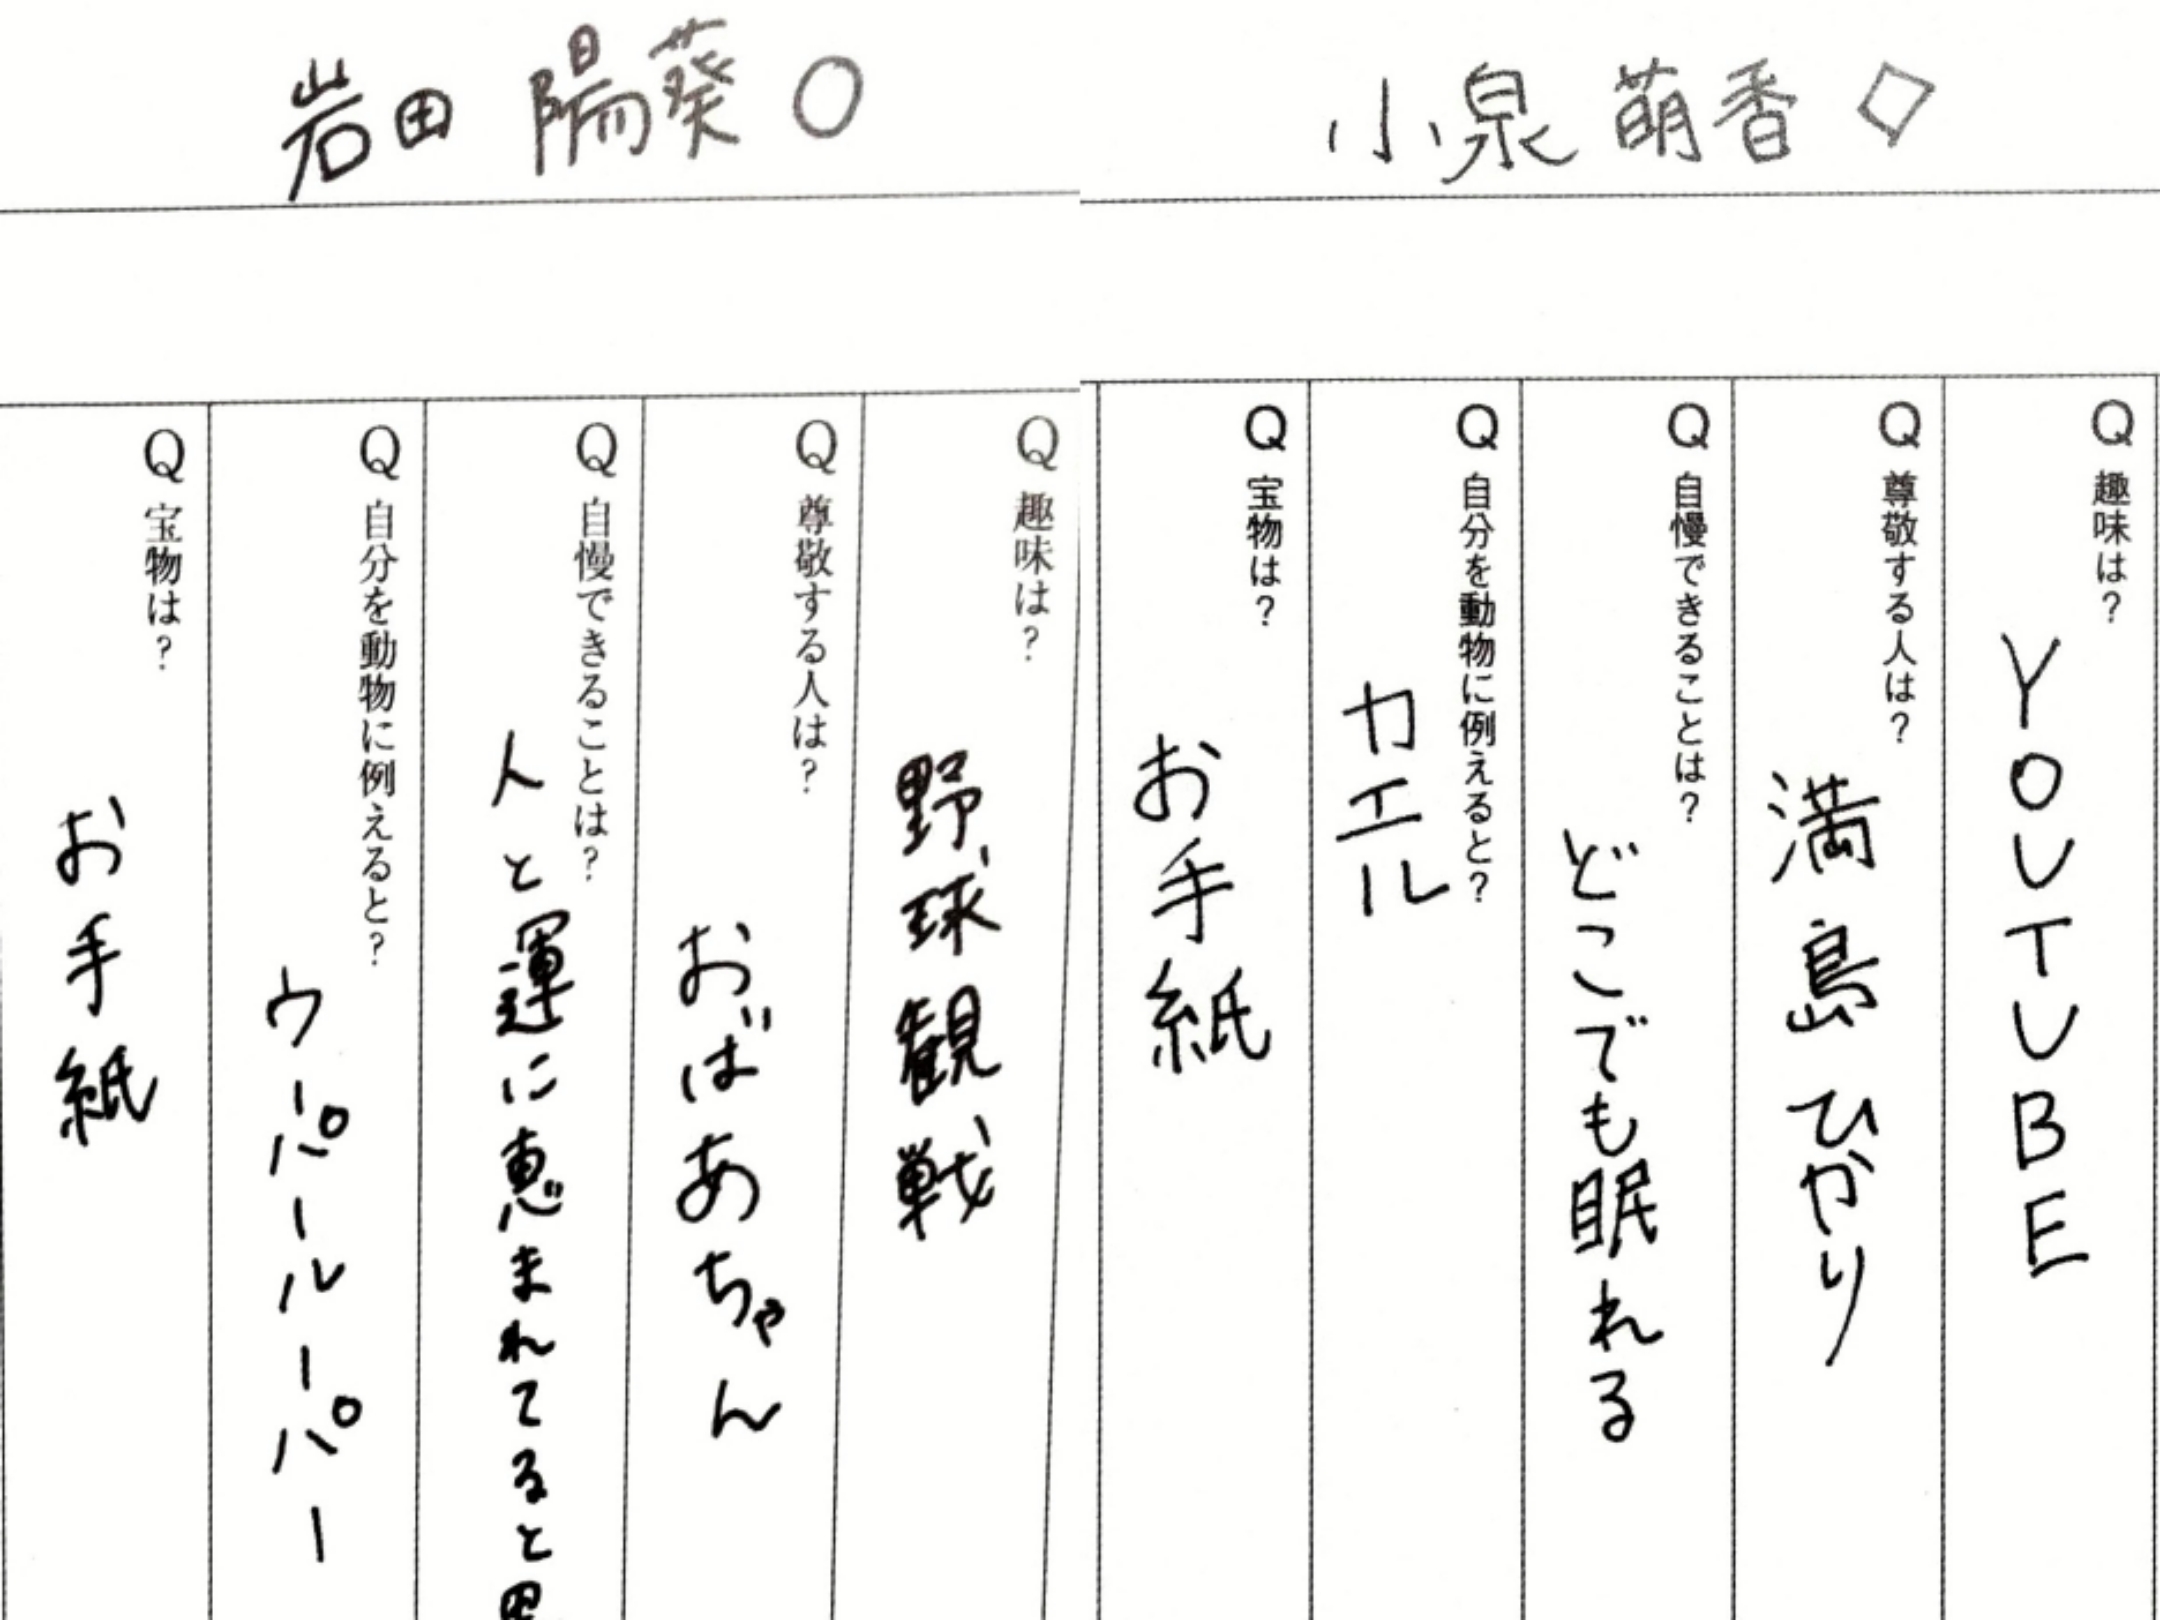 岩田 陽葵 ○
Q 趣味は？
野球観戦
Q 尊敬する人は？
おばあちゃん
Q 自慢できることは？
人と運に恵まれてると
Q 自分を動物に例えると？
ウーパールーパー
Q 宝物は？
お手紙
小泉 萌香 ◇
Q 趣味は？
YOUTUBE
Q 尊敬する人は？
満島ひかり
Q 自慢できることは？
どこでも眠れる
Q 自分を動物に例えると？
カエル
Q 宝物は？
お手紙